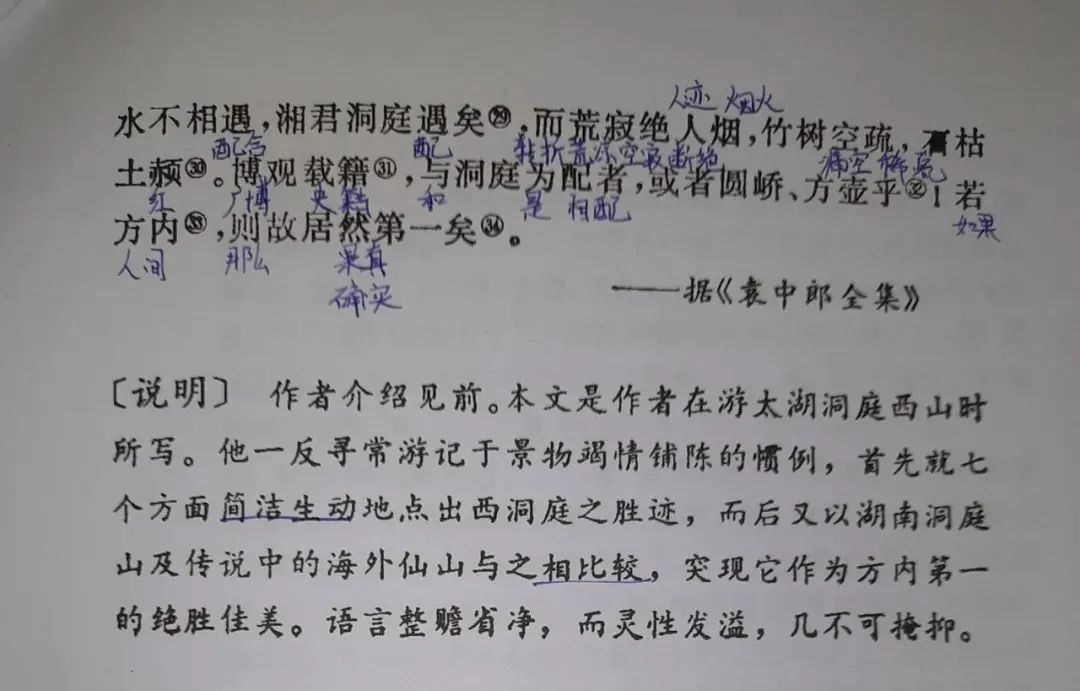 人迹 烟火
水不相遇，湘君洞庭遇矣㉙，而荒寂绝人烟，竹树空疏，石枯
配合 配 转折 荒凉 空寂 断绝 稀疏
土赪㉚。博观载籍㉛，与洞庭为配者，或者圆峤、方壶乎㉜！若
红 广博 史籍 和 是 相配 如果
方内㉝，则故居然第一矣㉞。
人间 那么 果真
确实
——据《袁中郎全集》
〔说明〕 作者介绍见前。本文是作者在游太湖洞庭西山时
所写。他一反寻常游记于景物竭情铺陈的惯例，首先就七
个方面简洁生动地点出西洞庭之胜迹，而后又以湖南洞庭
山及传说中的海外仙山与之相比较，突现它作为方内第一
的绝胜佳美。语言整赡省净，而灵性发溢，几不可掩抑。